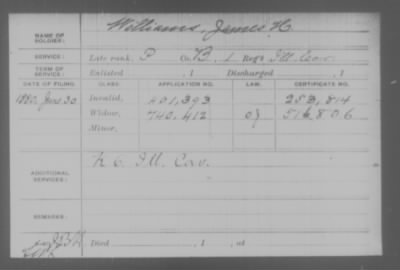 NAME OF SOLDIER: Williams, James H.
SERVICE: Late rank, P Co. B, 1 Reg't Ill. Cav.
TERM OF SERVICE: Enlisted , 1 Discharged , 1
DATE OF FILING. CLASS. APPLICATION NO. LAW. CERTIFICATE NO.
1880, June 30 Invalid, 401,393 253,814
Widow, 740,412 516,806
Minor,
ADDITIONAL SERVICES: K 6. Ill. Cav.
REMARKS:
Died , 1 , at